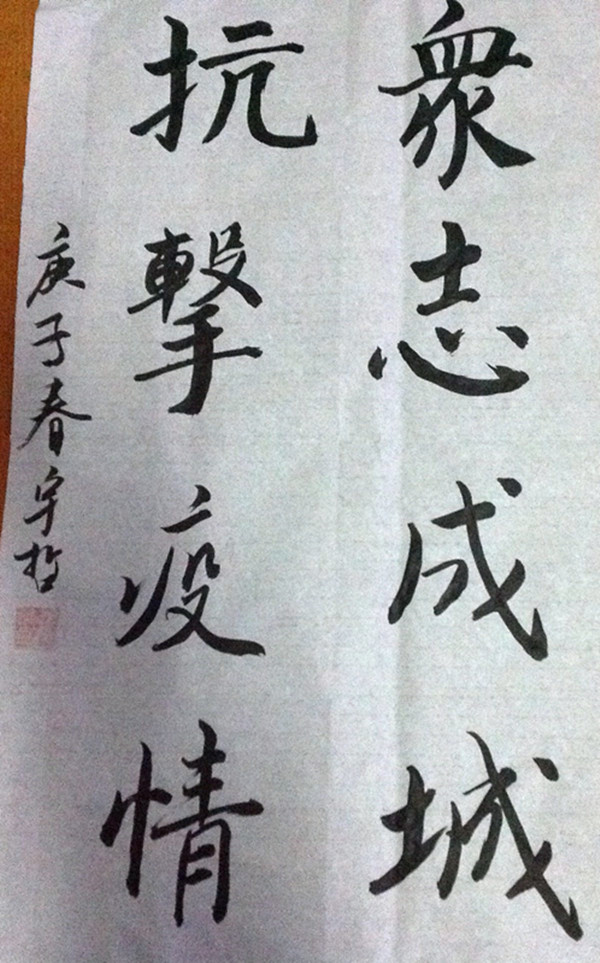 衆志成城
抗擊疫情
庚子春宇哲